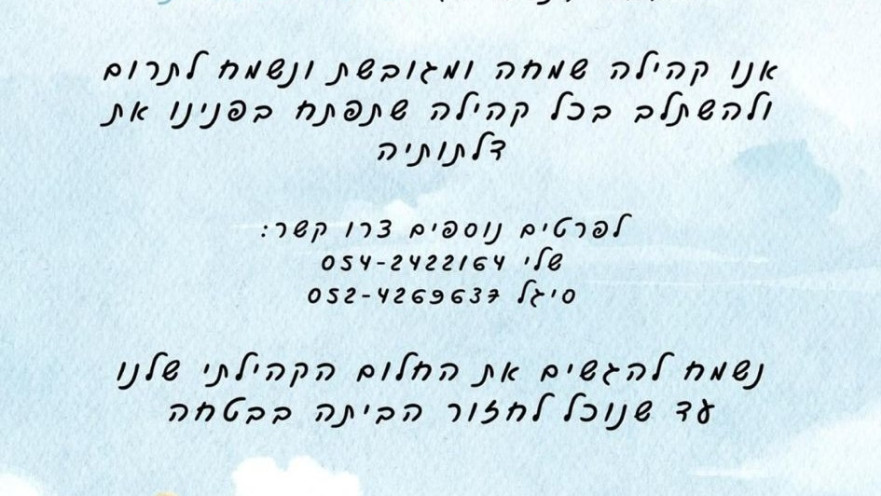 אנו קהילה שמחה ומגובשת ונשמח לתרום
ולהשתלב בכל קהילה שתפתח בפנינו את
דלתותיה
לפרטים נוספים צרו קשר:
שלי 054-2422164
סיגל 052-4269637
נשמח להגשים את החלום הקהילתי שלנו
עד שנוכל לחזור הביתה בבטחה